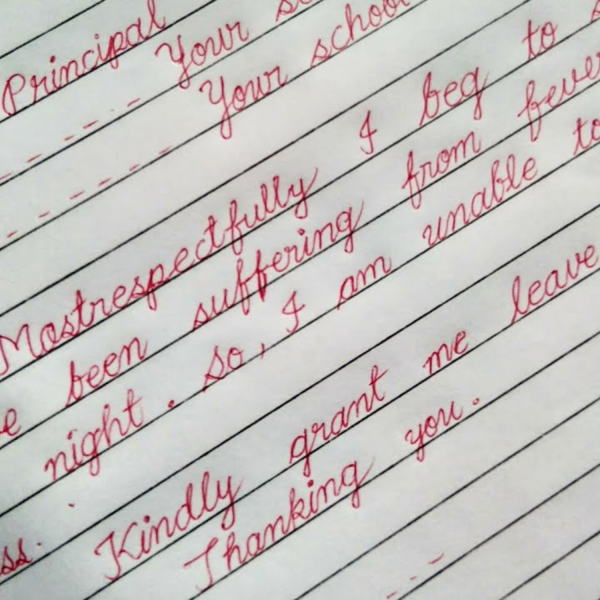 Principal
Your
Your school
Mostrespectfully I beg to
e been suffering from fever
night. so, I am unable to
ss. Kindly grant me leave
Thanking you.